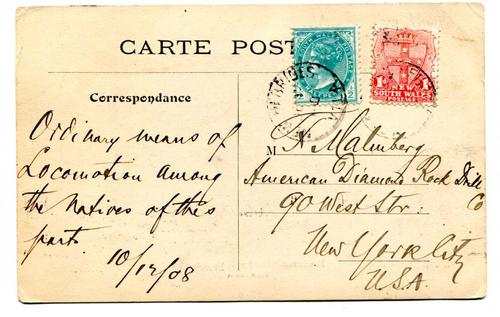 CARTE POST
Correspondance
Ordinary means of
Locomotion among
the Natives of this
part.
10/12/08
SOUTH WALES POSTAGE
NEW HEBRIDES
1D 1D
NEW
SOUTH WALES
POSTAGE
M. Malmberg
American Diamond Rock Drill
Co
90 West Str:
New York City
U.S.A.